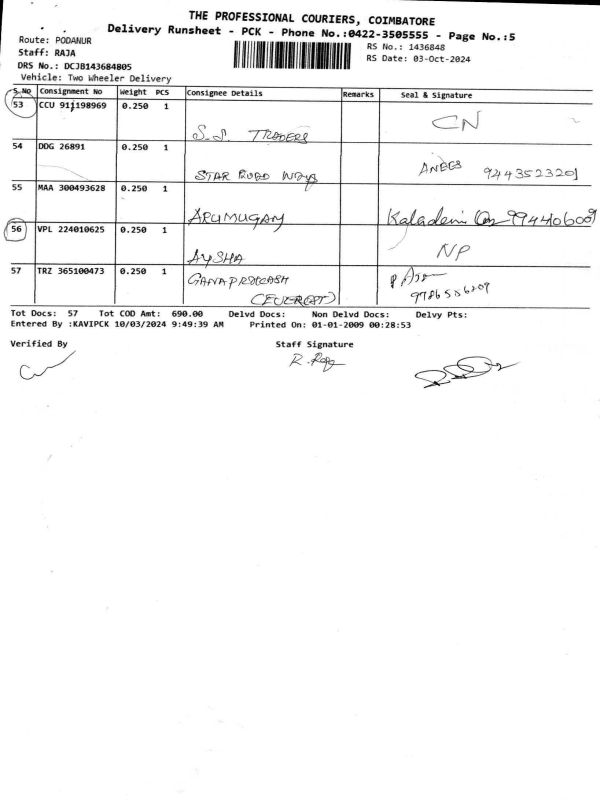 THE PROFESSIONAL COURIERS, COIMBATORE
Delivery Runsheet - PCK - Phone No.:0422-3505555 - Page No.:5
Route: PODANUR
RS No.: 1436848
Staff: RAJA
RS Date: 03-Oct-2024
DRS No.: DCJB143684805
Vehicle: Two Wheeler Delivery
S.No Consignment No Weight PCS Consignee Details Remarks Seal & Signature
53 CCU 911198969 0.250 1
S.S. TRADERS CN
54 DDG 26891 0.250 1
STAR ANEES 9443523201
55 MAA 300493628 0.250 1
ARUMUGAM
56 VPL 224010625 0.250 1
AYSHA NP
57 TRZ 365100473 0.250 1
Tot Docs: 57 Tot COD Amt: 690.00 Delvd Docs: Non Delvd Docs: Delvy Pts:
Entered By :KAVIPCK 10/03/2024 9:49:39 AM Printed On: 01-01-2009 00:28:53
Verified By Staff Signature